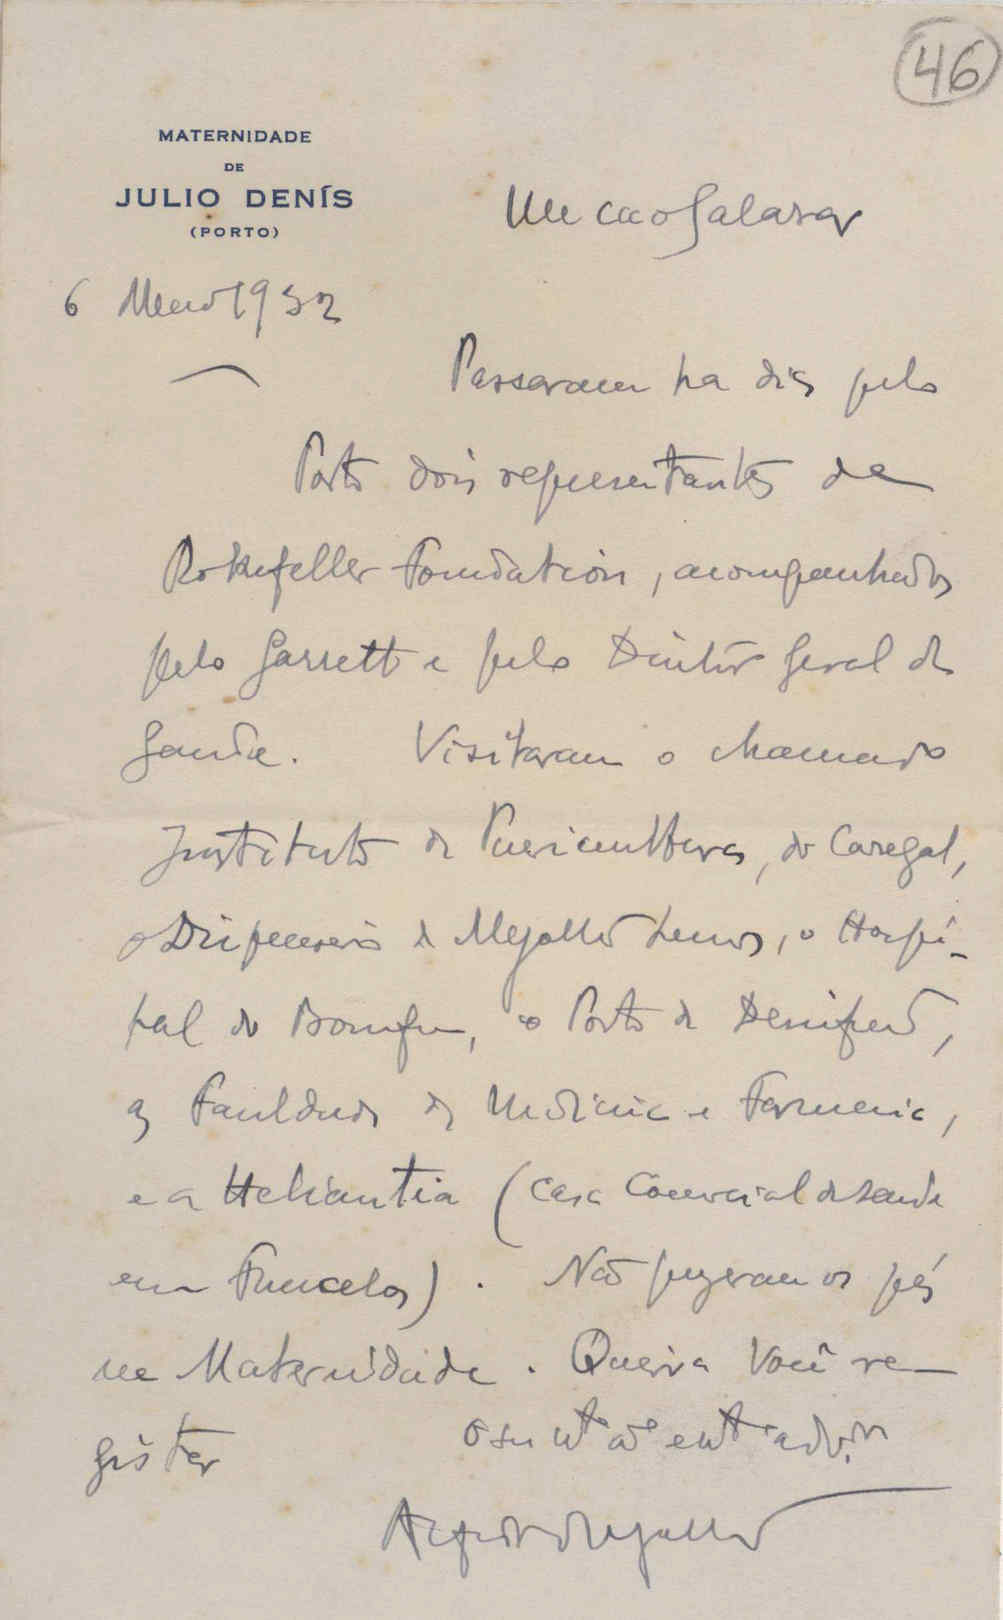 46
MATERNIDADE
DE
JULIO DENÍS
(PORTO)
Meu caro Salazar
6 Maio 1932
Passaram ha dias pelo
Porto dois representantes da
Rokefeller Foundation, acompanhados
pelo Garrett e pelo Diretôr Geral de
Saude. Visitaram o chamado
Instituto de Puericultura, do Caregal,
o Dispensario de Magalhães Lemos, o Hospi-
tal do Bomfim, o Posto de Desinfeção,
as Faculdades de Medicina e Farmacia,
e a Heliantia (casa comercial de saude
em Francelos). Não puzeram os pés
na Maternidade. Queira Você re-
gistar
o seu mto
Alfredo de Magalhães